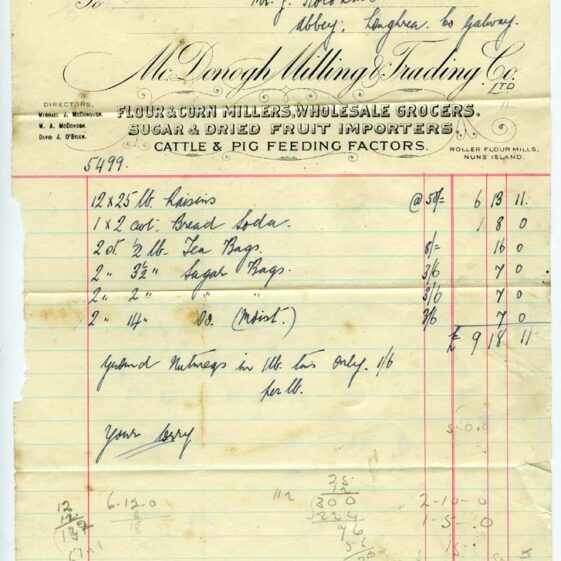 To Mr. J.
Abbey, Loughrea. Co Galway.
McDonogh Milling & Trading Co. LTD
DIRECTORS.
MICHAEL J. McDONOUGH.
W. A. McDONOGH.
DAVID J. O'BRIEN.
FLOUR & CORN MILLERS, WHOLESALE GROCERS.
SUGAR & DRIED FRUIT IMPORTERS
CATTLE & PIG FEEDING FACTORS.
ROLLER FLOUR MILLS,
NUNS' ISLAND.
5499.
12 x 25 lb. Raisins @ 6 13 11.
1 x 2 cwt. Bread Soda. 1 8 0
2 ½ lb. Tea Bags. 8/= 16 0
2 " 3½ " Sugar Bags. 3/6 7 0
2 " 2 " " " 3/6 7 0
2 " 14 " Do. (Moist.) 3/6 7 0
£ 9 18 11
Ground Nutmegs in 1 lb. tins only. 1/6
per lb.
Your lorry
5.0.0
12 6-12-0 112 300 2-10-0
224 1-5-0
76